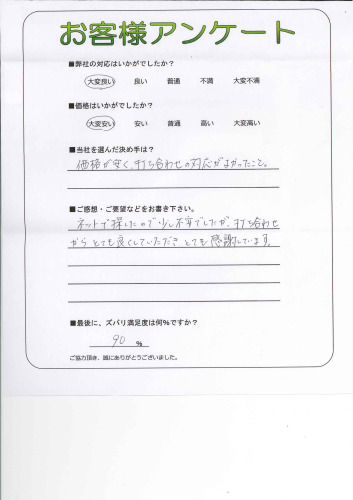 お客様アンケート
■弊社の対応はいかがでしたか？
大変良い 良い 普通 不満 大変不満
■価格はいかがでしたか？
大変安い 安い 普通 高い 大変高い
■当社を選んだ決め手は？
価格が安く、打ち合わせの対応がよかったこと。
■ご感想・ご要望などをお書き下さい。
ネットで探したので少し不安でしたが、打ち合わせ
からとても良くしていただき とても感謝しています。
■最後に、ズバリ満足度は何%ですか？
90 %
ご協力頂き、誠にありがとうございました。